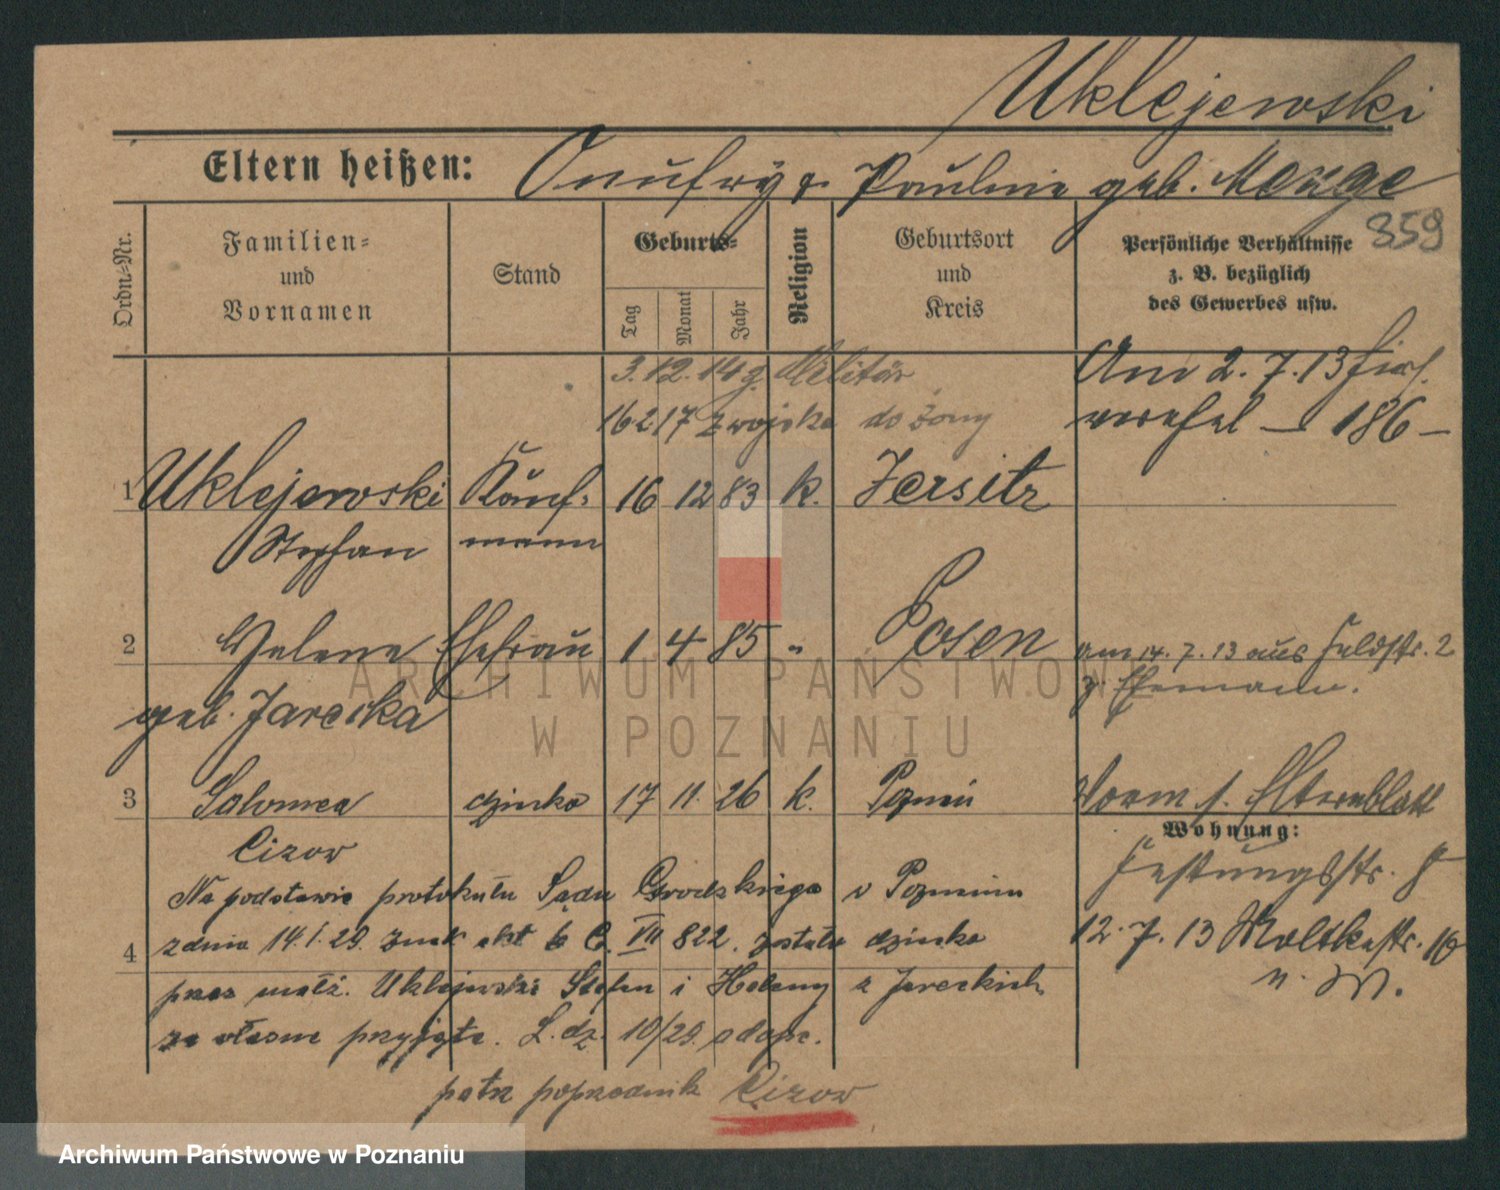 Uklejewski
Eltern heißen: Onufry & Pauline geb. Menge
359
Ordn.-Nr.
Familien-
und
Vornamen
Stand
Geburts-
Tag
Monat
Jahr
Religion
Geburtsort
und
Kreis
Persönliche Verhältnisse
z. B. bezüglich
des Gewerbes usw.
3. 12. 14 z. Militär
16 2 17 z wojska do żony
Am 2. 7. 13
186 —
1 Uklejewski Kauf- 16 12 83 k. Jersitz
Stephan mann
2 Helene Ehefrau 1 4 85 " Posen
geb. Jarecka
am 14. 7. 13 aus Feldstr. 2
z. Ehemann.
3 Salomea dziecko 17 11. 26 k. Poznań
Cizow
Vorm s. Elternblatt
Wohnung:
Festungsstr. 8
12. 7. 13 Moltkestr. 16
n. M.
Na podstawie protokułu Sądu Grodzkiego w Poznaniu
4 z dnia 14.1.29. znak akt 6 C. VII 822. zostało dziecko
przez małż. Uklejewski Stefan i Heleny z Jareckich
za własne przyjęte. L. dz. 10/29 adopc.
patrz poprzednik Cizow
ARCHIWUM PAŃSTWOWE
W POZNANIU
Archiwum Państwowe w Poznaniu